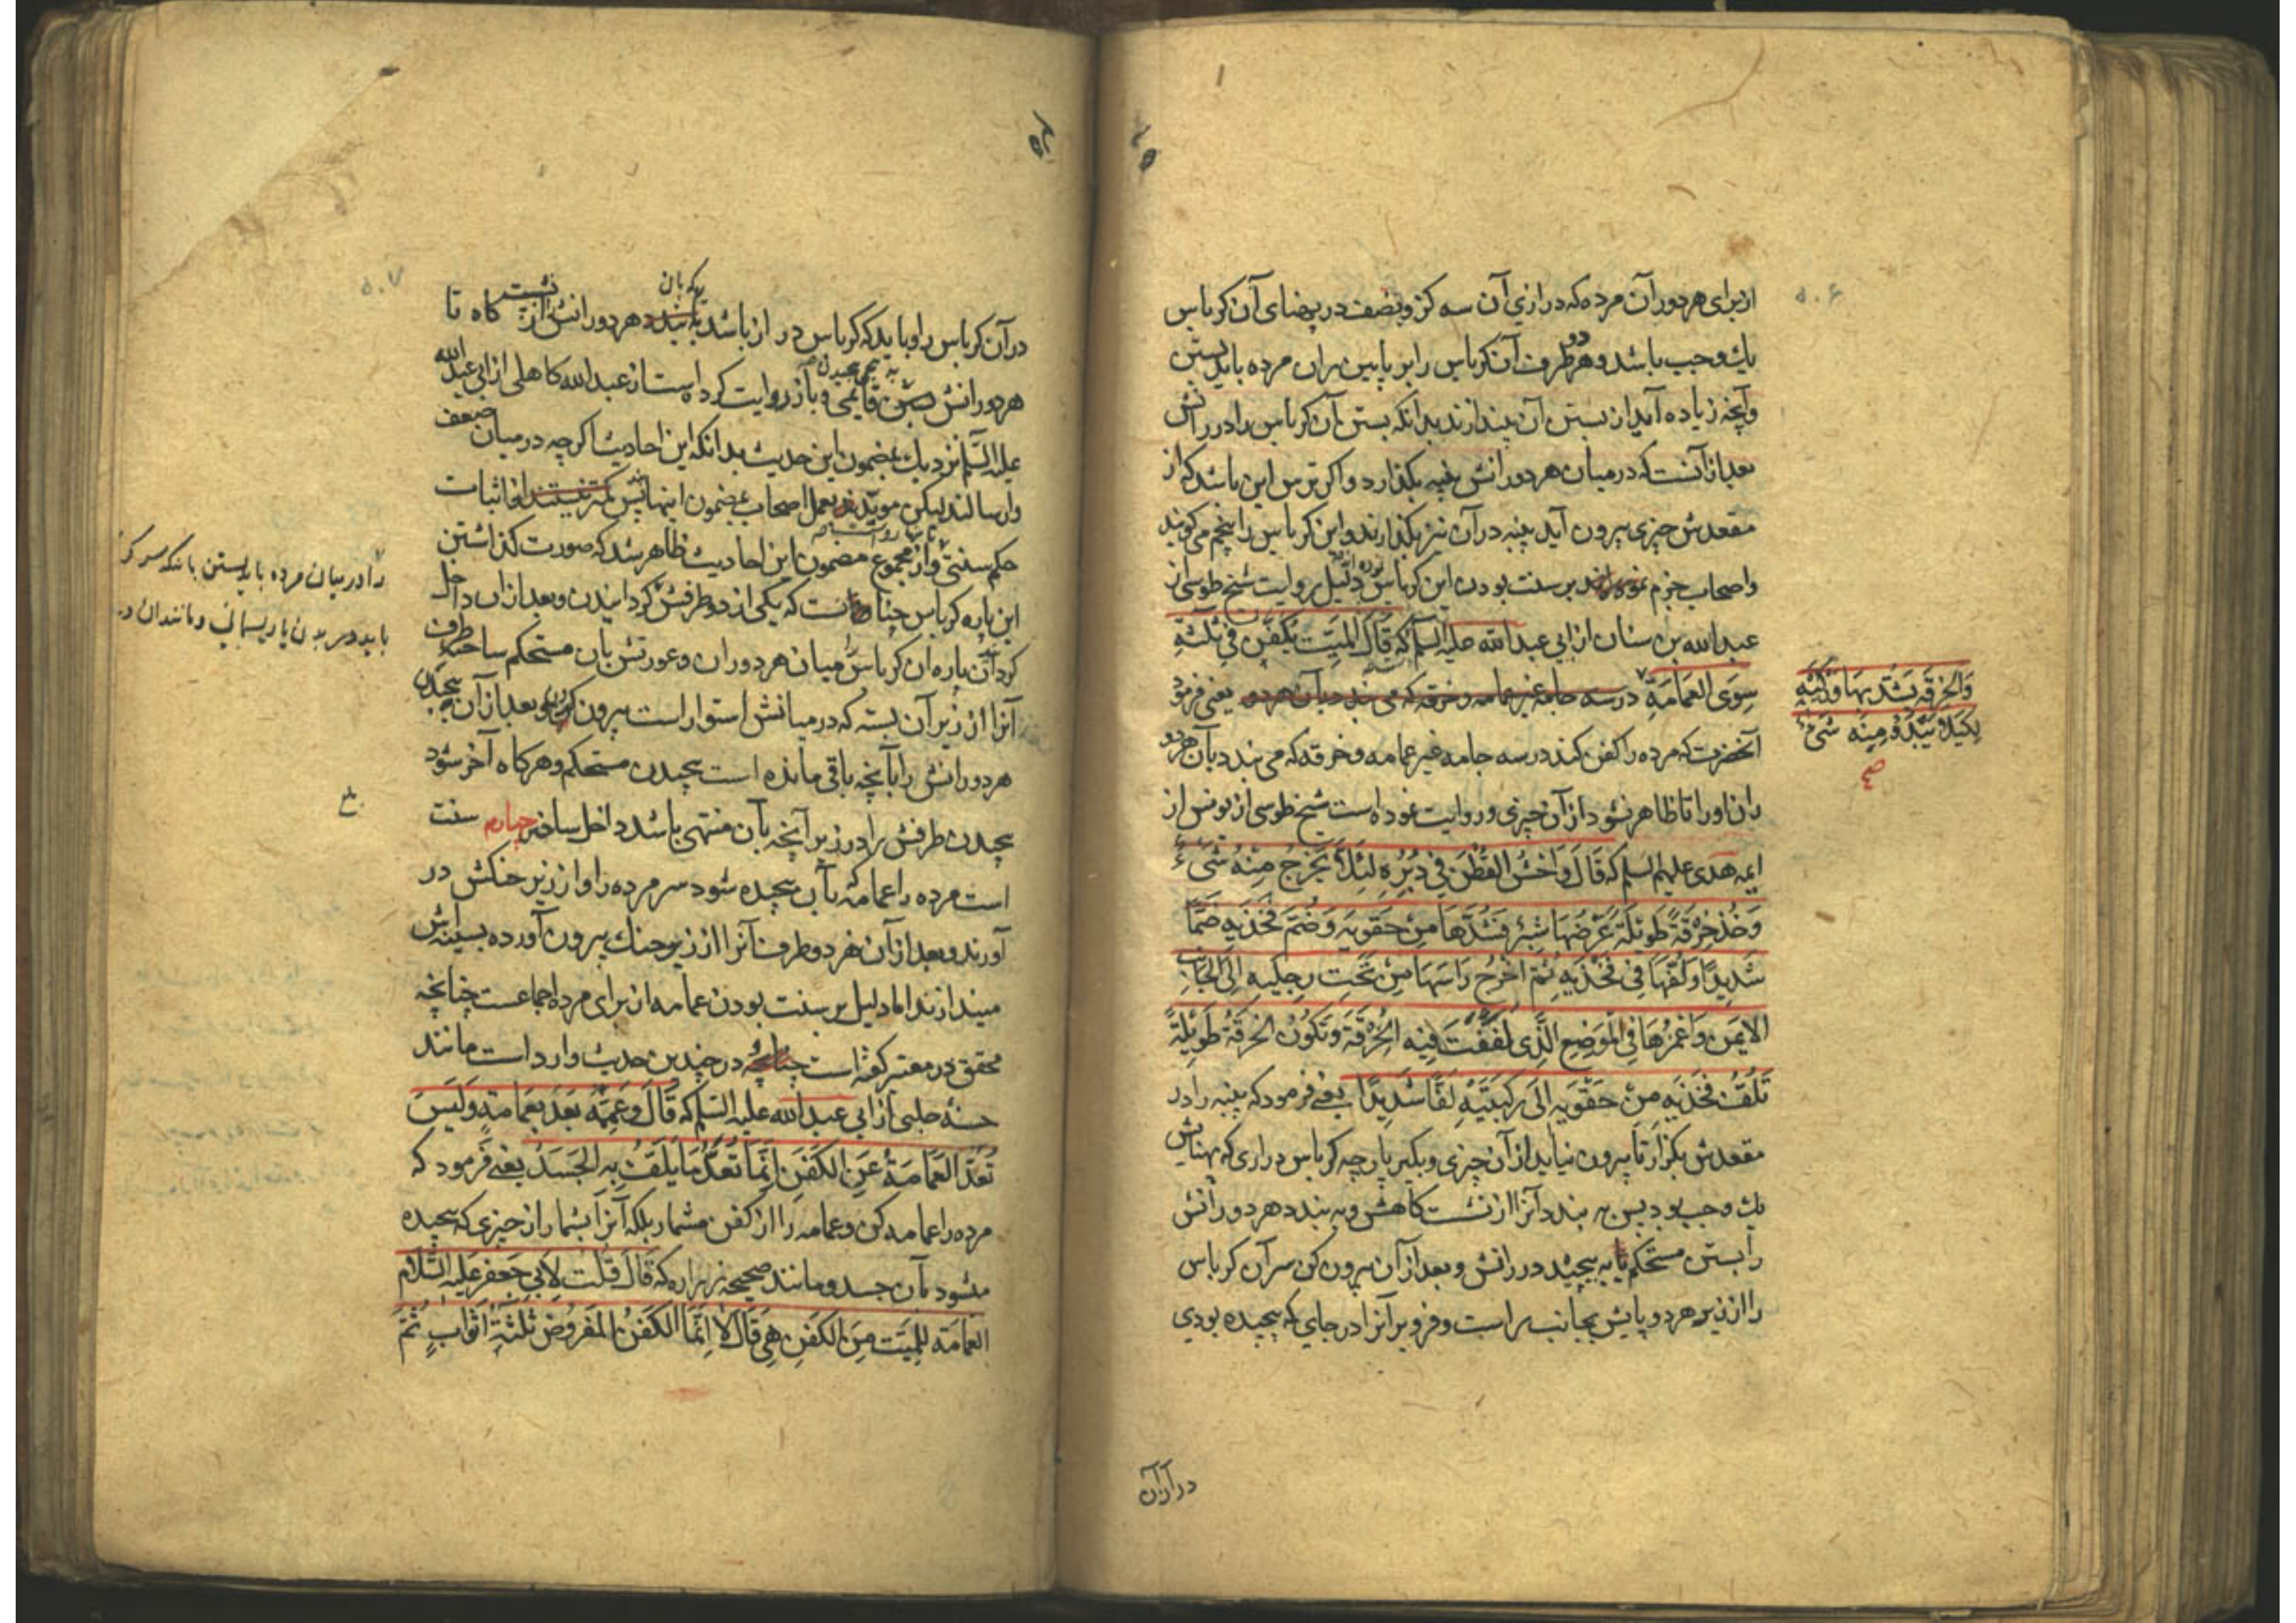 از برای هر دو ران مرده که درازی آن سه کز و نصف در پهنای آن کرباس
یك وجب باشد و هر دو طرف آن کرباس را بر پایین ران مرده باید بستن
وآنچه زیاده آید از بستن آن بیندازند بدانکه بستن آن کرباس را در رانش
بعد از آنست که در میان هر دو رانش پنبه بکذارد و اکر ترس این باشد که از
مقعدش چیزی بیرون آید پنبه در آن نیز بکذارند و این کرباس را پنجم می کویند
واصحاب جزم نموده اند بر سنت بودن این کرباس دلیل روایت شیخ طوسی از
عبد الله بن سنان از ابی عبد الله علیه السلم که قَالَ المَیِّت یُکَفَّن فِی ثَلثَةٍ
سِوَی العَمَامَةِ در سه جامه غیر عمامه و خرقه که می بندد بآن هر دو یعنی فرمود
وَالخِرقَة یَشُدّ بِهَا وَرکَیهِ
لِکَیلا یَبدُو مِنهُ شَیء
صح
آنحضرت که مرده را کفن کند در سه جامه غیر عمامه و خرقه که می بندد بآن هر دو
ران او را تا ظاهر نشود از آن چیزی و روایت نموده است شیخ طوسی از یونس از
ایمه هدی علیهم السلم که قَالَ وَاحْشُ القُطْنَ فِی دُبُرِهِ لِئَلَّا یَخْرُجَ مِنْهُ شَیءٌ
وَخُذ خِرْقَةً طَوِیلَةً عَرْضُهَا شِبْرٌ فَشُدَّهَا مِن حَقْوَیهِ وَضُمَّ فَخْذَیهِ ضَمًّا
شَدِیدًا وَلُفَّهَا فِی فَخْذَیهِ ثُمَّ اَخْرِجْ رَاسَهَا مِن تَحْتِ رِجْلَیهِ اِلَی الجَانِبِ
الاَیمَنِ وَاغْمِزْهَا فِی المَوضِعِ الَّذِی لَفَفْتَ فِیهِ الخِرْقَةَ وَتَکُونُ الخِرقَةُ طَوِیلَةً
تَلُفُّ فَخْذَیهِ مِنْ حَقْوَیهِ اِلَی رُکبَتَیهِ لَفًّا شَدِیدًا یعنی فرمود که پنبه را در
مقعدش بکزار تا بیرون نیاید از آن چیزی و بکیر پارچه کرباس درازی که پهنایش
یك وجب بود پس به بندد آنرا از نشست کاهش و به بندد هر دو رانش
را بستن مستحکم تا به پیچید در رانش و بعد از آن بیرون کن سر آن کرباس
را از زیر هر دو پایش بجانب راست و فرو بر آنرا در جایی که پیچیده بودی
در آن
در آن کرباس را و باید که کرباس دراز باشد که بآن هر دو رانش از نشست کاه تا
هر دو رانش و باز روایت کرده است از عبد الله کاهلی از ابی عبد الله
علیه السّلم نزدیك بمضمون این حدیث بدانکه این احادیث اکرچه در میان ضعف
وارسالند لیکن مویّدند بعمل اصحاب بمضمون اینها پس کمتر نیستند از اثبات
حکم سنتی و از مجموع مضمون این احادیث ظاهر شد که صورت کذاشتن
این پاره کرباس چنانست که یکی از دو طرفش کردانیدن و بعد از ان داخل
کردن پاره ان کرباس میان هر دو ران و عورتش بان مستحکم ساختن طرف
را در میان مرده باید بستن بانکه سر
باید در بدن یا ریسمانی و مانندان
آنرا از زیر آن بسته که در میانش استوار است بیرون کردن و بعد از آن پیچیدن
هر دو رانش را بآنچه باقی مانده است پیچیدن مستحکم و هر کاه آخر شود
پیچیدن طرفش را در زیر آنچه بآن منتهی باشد داخل ساختن چهارم سنت
است مرده را عمامه که بآن پیچیده شود سر مرده را و از زیر حنکش در
آورند و بعد از آن هر دو طرف آنرا از زیر حنك بیرون آورده بسینه اش
میندازند اما دلیل بر سنت بودن عمامه از برای مرده اجماعست چنانچه
محقق در معتبر کفته است چنانچه در چندین حدیث وارد است مانند
حسنه حلبی از ابی عبد الله علیه السلم که قَالَ وَعَمِّمْهُ بَعدُ بِعَمَامَةٍ وَلَیسَ
تُعَدُّ العَمَامَةُ مِنَ الکَفَنِ اِنَّمَا تُعَدُّ مَا یُلَفُّ بِهِ الجَسَدُ یعنی فرمود که
مرده را عمامه کن و عمامه را از کفن مشمار بلکه آنرا بشمار از چیزی که پیچیده
میشود بآن جسد و مانند صحیحه زراره که قَالَ قُلْتُ لِاَبِی جَعْفَر عَلَیهِ السَّلَامُ
العمَامَة لِلمَیِّت مِنَ الکَفَنِ هِیَ قَالَ لَا اِنَّمَا الکَفَنُ المَفرُوضُ ثَلٰثَةُ اَثوَابٍ ثُمَّ